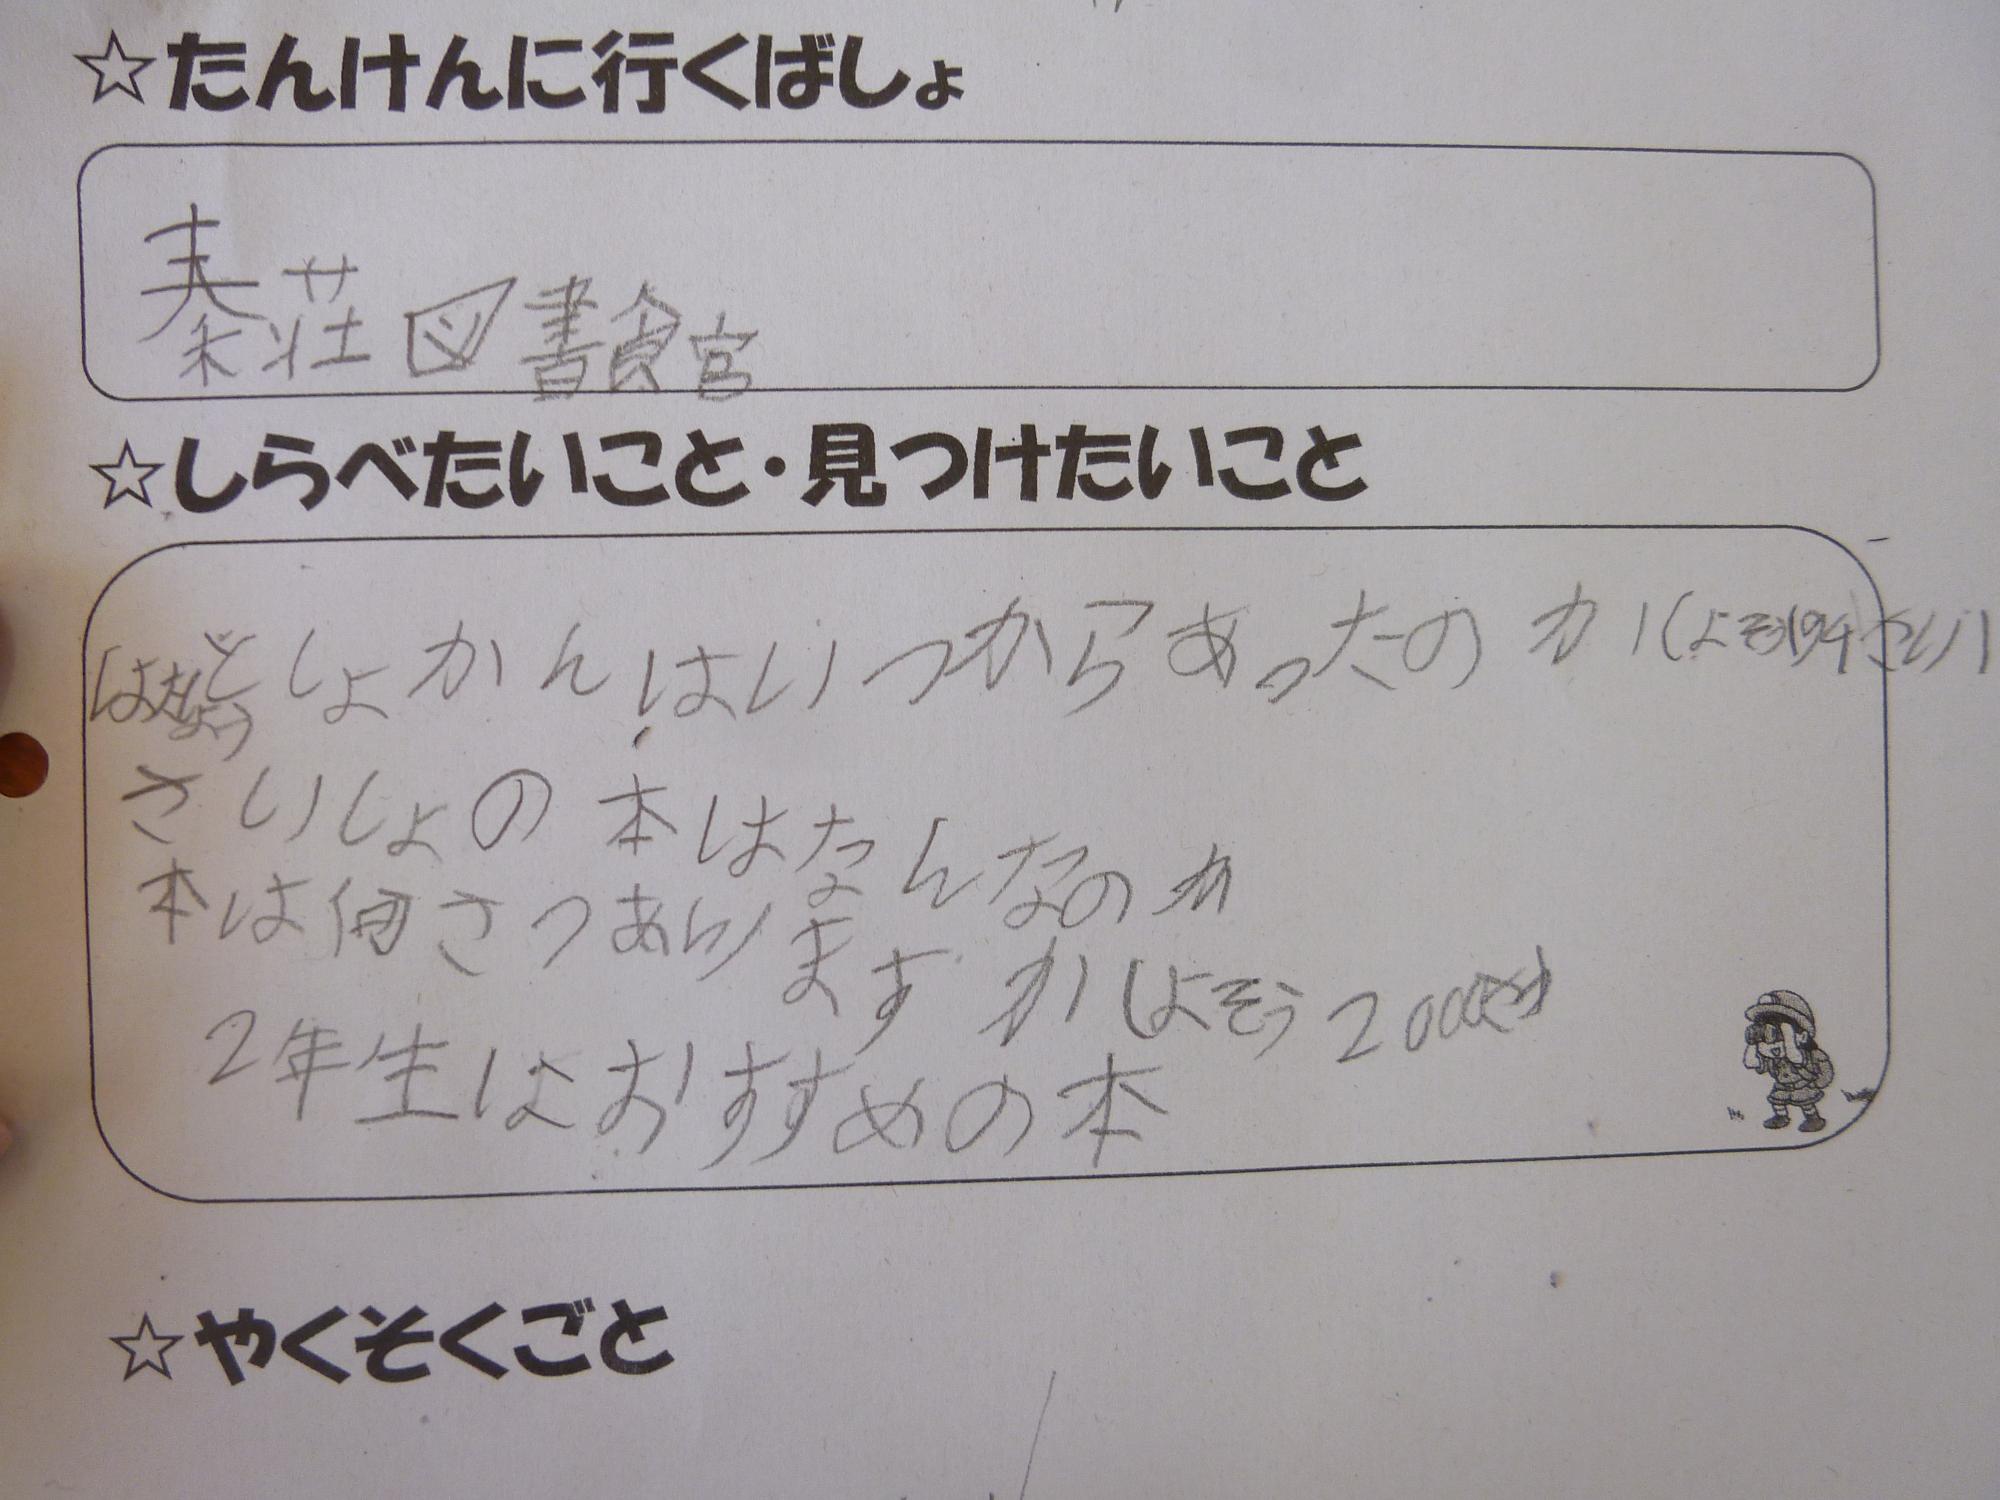 ☆たんけんに行くばしょ
秦荘図書館
☆しらべたいこと・見つけたいこと
としょかんはいつからあったのか よそう194さい
はたしょう
さいしょの本はなんなのか
本は何さつありますか よそう2000さつ
2年生はおすすめの本
☆やくそくごと